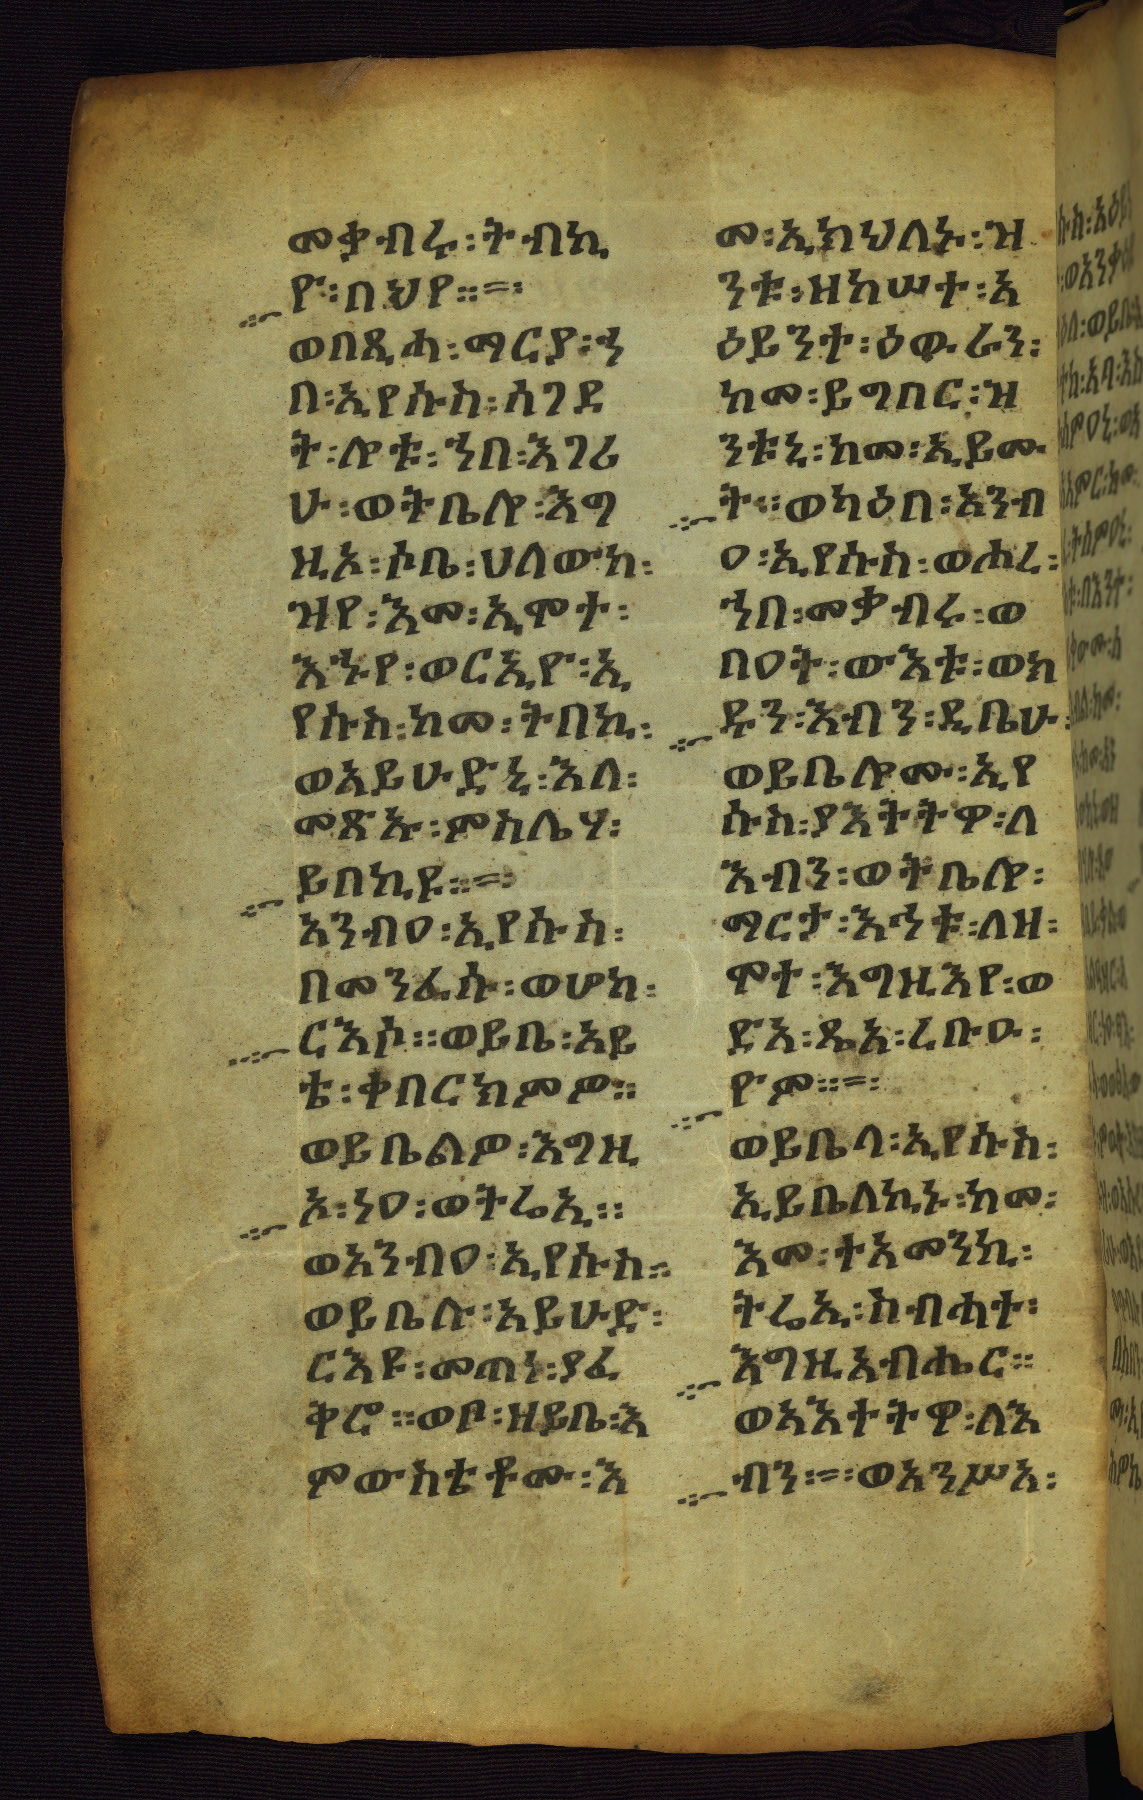 መቃብሩ፡ትብኪ
ዮ፡በህየ።
ወበጺሓ፡ማርያ፡ኀ
በ፡ኢየሱስ፡ሰገደ
ት፡ሎቱ፡ኀበ፡እገሪ
ሁ፡ወትቤሎ፡እግ
ዚኦ፡ሶቤ፡ህለውከ፡
ዝየ፡እመ፡ኢሞተ፡
እኁየ፡ወርእዮ፡ኢ
የሱስ፡ከመ፡ትበኪ፡
ወአይሁድኒ፡እለ፡
መጽኡ፡ምስሌሃ፡
ይበኪዩ።
አንብዐ፡ኢየሱስ፡
በመንፈሱ፡ወሆከ፡
ርእሶ።ወይቤ፡አይ
ቴ፡ቀበርክምዎ።
ወይቤልዎ፡እግዚ
ኦ፡ነዐ፡ወትሬኢ።
ወአንብዐ፡ኢየሱስ።
ወይቤሉ፡አይሁድ፡
ርእዩ፡መጠነ፡ያፈ
ቅሮ።ወቦ፡ዘይቤ፡እ
ምውስቴቶሙ፡እ
መ፡ኢክህለኑ፡ዝ
ንቱ፡ዘከሠተ፡አ
ዕይንተ፡ዕውራን፡
ከመ፡ይግበር፡ዝ
ንቱኒ፡ከመ፡ኢይሙ
ት።ወካዕበ፡አንብ
ዐ፡ኢየሱስ፡ወሖረ፡
ኀበ፡መቃብሩ፡ወ
በዐት፡ውእቱ፡ወክ
ዱን፡እብን፡ዲቤሁ፡
ወይቤሎሙ፡ኢየ
ሱስ፡ያእትትዋ፡ለ
እብን፡ወትቤሎ፡
ማርታ፡እኅቱ፡ለዘ፡
ሞተ፡እግዚእየ፡ወ
ድአ፡ጼአ፡ረቡዑ፡
ዮም።
ወይቤላ፡ኢየሱስ፡
ኢይቤለኪኑ፡ከመ፡
እመ፡ተአመንኪ፡
ትሬኢ፡ስብሓተ፡
እግዚአብሔር።
ወአእተትዋ፡ለእ
ብን።ወአንሥአ፡